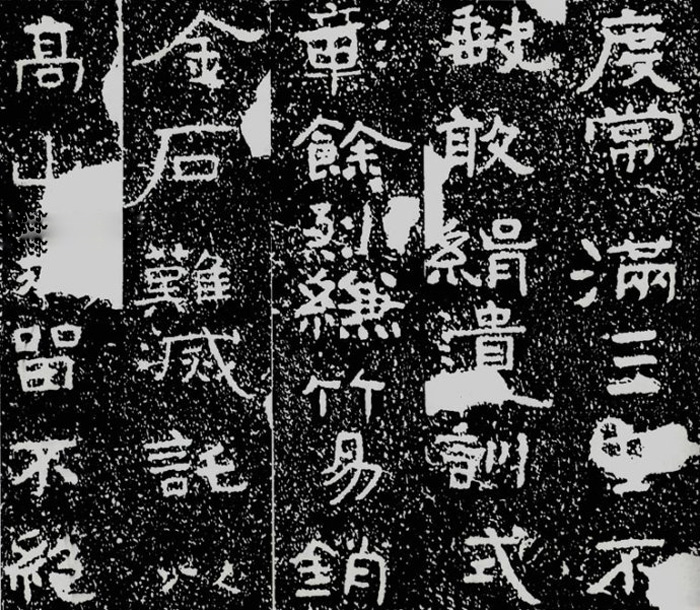 度常滿三不
敢緝遺訓式
彰餘烈縑竹易銷
金石難滅託以
高山永留不絕